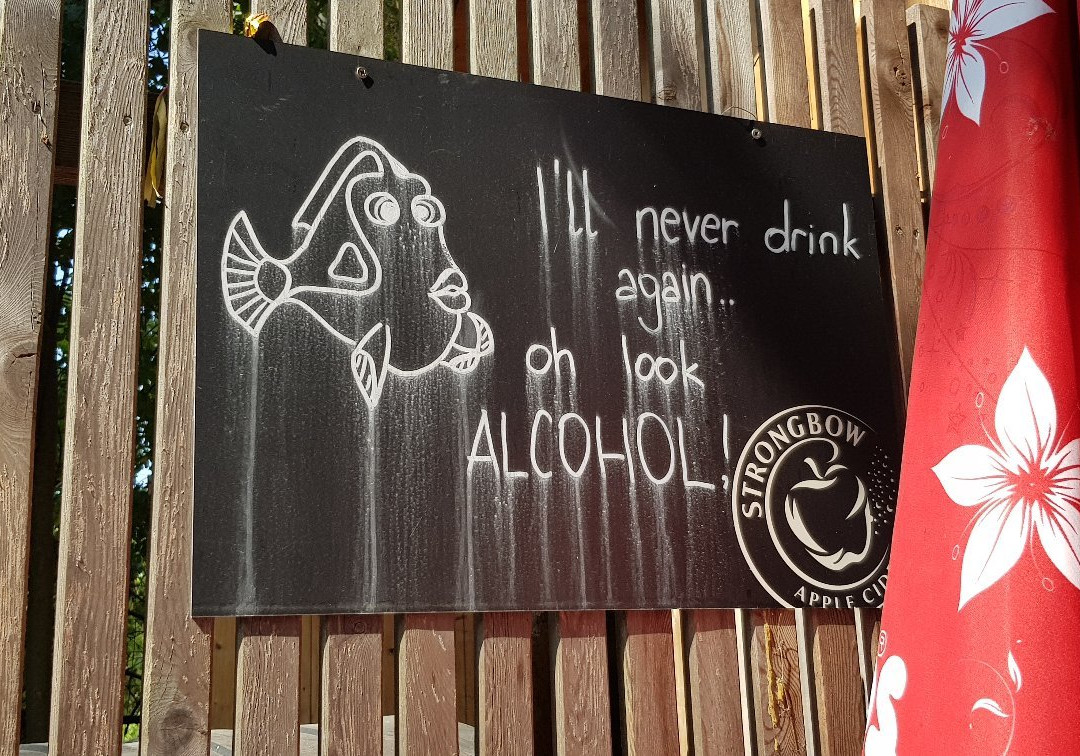 I'll never drink
again..
oh look
ALCOHOL!
STRONGBOW
APPLE CID